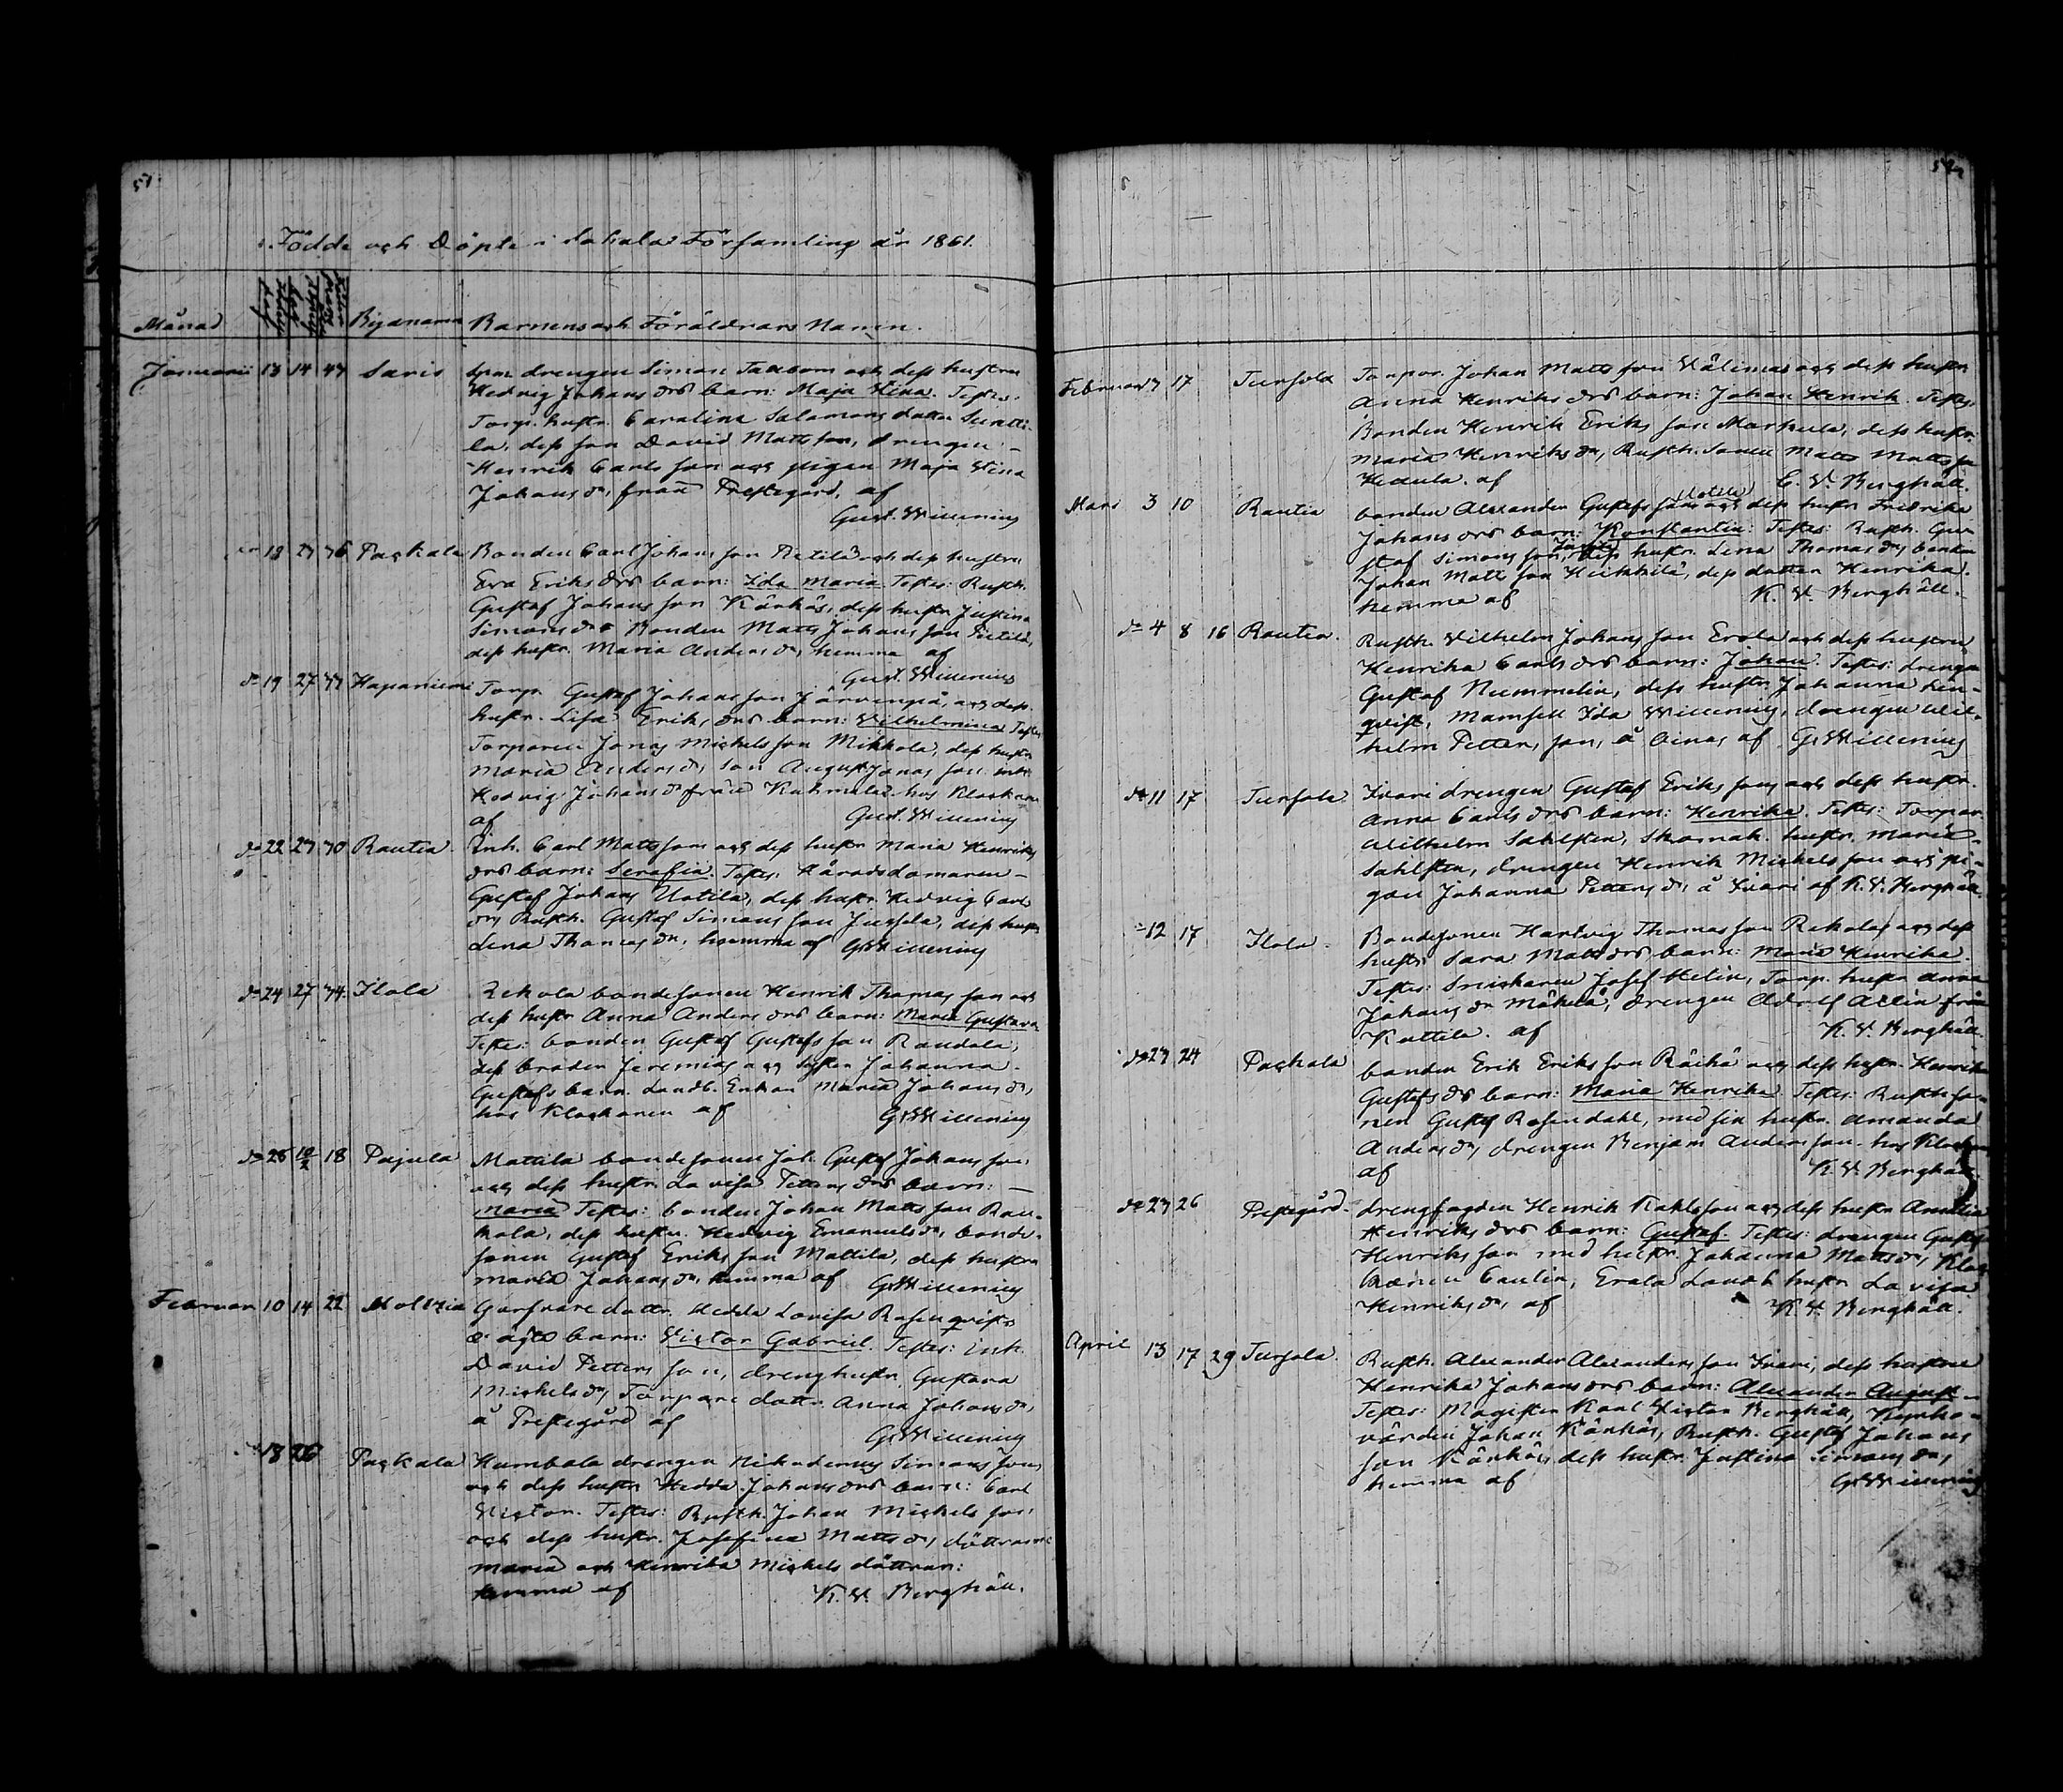 51.
Födde och Döpte i Sahalax Församling år 1861.
Månad Byanamn Barnens och Föräldrars Namn.
Januarii 13 14 47 Saris
drengen Simon Tallbom och dess hustru
Hedvig Johans drs barn: Maja Stina. Testes:
Torp. hustr. Carolina Salomons dotter Suntti-
la, dess son David Matts son, drengen
Henrik Carls son och pigan Maja Stina
Johans dr, från Prestegård, af
Gust. Willenius
18 27 36 Packala Bonden Carl Johans son Pietilä och dess hustru
Eva Eriks drs barn: Ida Maria. Testes: Rusth.
Gustaf Johans son Kärkäs, dess hustr. Justina
Simons dr Bonden Matts Johans son Pietilä,
dess hustr. Maria Anders dr, hemma af
Gust. Willenius
do 19 27 37 Haapaniemi Torp. Gustaf Johans son Järvenpä, och dess
hustr. Lisa Eriks drs barn: Wilhelmina Testes
Torparen Jonas Michels son Mikkola, dess hustr.
Maria Anders dr, son August Jonas son inh.
Hedvig Johans dr från Kuhmalax hos Klockaren
af Gust. Willenius
do 22 27 30 Rautia Inh. Carl Matts son och dess hustr. Maria Henriks
drs barn: Serafia. Testes: Häradsdomaren
Gustaf Johans Uotila, dess hustr. Hedvig Carls
dr, Rusth. Gustaf Simons son Jussila, dess hustr.
Lena Thomas dr, hemma af G. Willenius
do 24 27 34 Ilola Rekola bondesonen Henrik Thomas son och
dess hustr. Anna Anders drs barn: Maria Gustava
Testes: bonden Gustaf Gustafs son Randala,
dess broder Jeremias och syster Johanna
Gustafs barn. Landb. Enkan Maria Johans dr,
hos Klockaren af G. Willenius
do 28 10/2 18 Pajula Mattila bondesonen Joh. Gustaf Johans son
och dess hustr. Lovisa Petters drs barn:
Maria Testes: bonden Johan Matts son Rau-
kola, dess hustru Hedvig Emanuels dr, bonde-
sonen Gustaf Eriks son Mattila, dess hustru
Maria Johans dr, hemma af G. Willenius
Februari 10 14 22 Moltzia Garfvare dottr. Hedda Lovisa Rosenqvists
o. ägta barn: Victor Gabriel. Testes: inh.
David Petters son, drenghustr. Gustava
Michels dr, Torpare dottr. Anna Johans dr,
å Prestegård af
G. Willenius
18 26 Packala Humbala drengen Nikodemus Simons son
och dess hustr. Hedda Johans drs barn: Carl
Victor. Testes: Rusth. Johan Michels son
och dess hustr. Josefina Matts dr, döttrarne
Maria och Henrika Michels döttrar:
hemma af K. V. Berghäll.
Februari 7 17 Turssola Torpar. Johan Matts son Välimaa och dess hustr.
Anna Henriks drs barn: Johan Henrik. Testes:
Bonden Henrik Eriks son Markula, dess hustr.
Maria Henriks dr, Rusth. Sonen Matts Matts son
af K. V. Berghäll.
Mars 3 10 Rautia bonden Alexander Gustafs son Uotila och dess hustr. Fredrika
Johans drs barn: Konstantin: Testes: Rusth. Gu-
staf Simons son, Jussila dess hustr. Lena Thomas dr, bonden
Johan Matts son Heikkilä, dess dotter Henrika.
hemma af K. V. Berghäll.
do 4 8 16 Rautia. Rusth. Vilhelm Johans son Erola och dess hustru
Henrika Carls drs barn: Johan. Testes: drengen
Gustaf Nummelin, dess hustr. Johanna Lin-
qvist, Mamsell Ida Willenius, drengen Wil-
helm Petters son, å af G. Willenius
do 11 17 Turssola. Isvari drengen Gustaf Eriks son och dess hustr.
Anna Carls drs barn: Henrika. Testes: Torpar.
Wilhelm Sahlsten, Skomak. hustr. Maria
Sahlsten, drengen Henrik Michels son och pi-
gan Johanna Petters dr, å Isvari af K. V. Berghäll.
12 17 Ilola. Bondesonen Hartvig Thomas son Rekola och dess
hustr. Sara Matts drs barn: Maria Henrika.
Testes: Snickaren Josef Helin, Torp. hustr. Anna
Johans dr Mäkelä, drengen Adolf Allin från
Kattila. af K. V. Berghäll.
do 27 24 Packala bonden Erik Eriks son Räihä och dess hustr. Henrika
Gustafs drs barn: Maria Henrika. Testes: Rusth. so-
nen Gustaf Rosendahl, med sin hustr. Amanda
Anders dr, drengen Benjam Anders son. hos Klockaren
af K. V. Berghäll
do 27 26 Prestegård. drengfogden Henrik Karlsson och dess hustr. Amalia
Henriks drs barn: Gustaf. Testes: drengen Gustaf
Henriks son med hustr. Johanna Matts dr, Kloc-
karen Caulin, Erola Landb. hustr. Lovisa
Henriks dr, af K. V. Berghäll.
April 13 17 29 Turssola. Rusth. Alexander Alexanders son Isvari, dess hustru
Henrika Johans drs barn: Alexander August.
Testes: Magister Karl Victor Berghäll, Kyrko-
värden Johan Kärkäs, Rusth. Gustaf Johans
son Kärkäs, dess hustr. Justina Simons dr,
hemma af G. Willenius